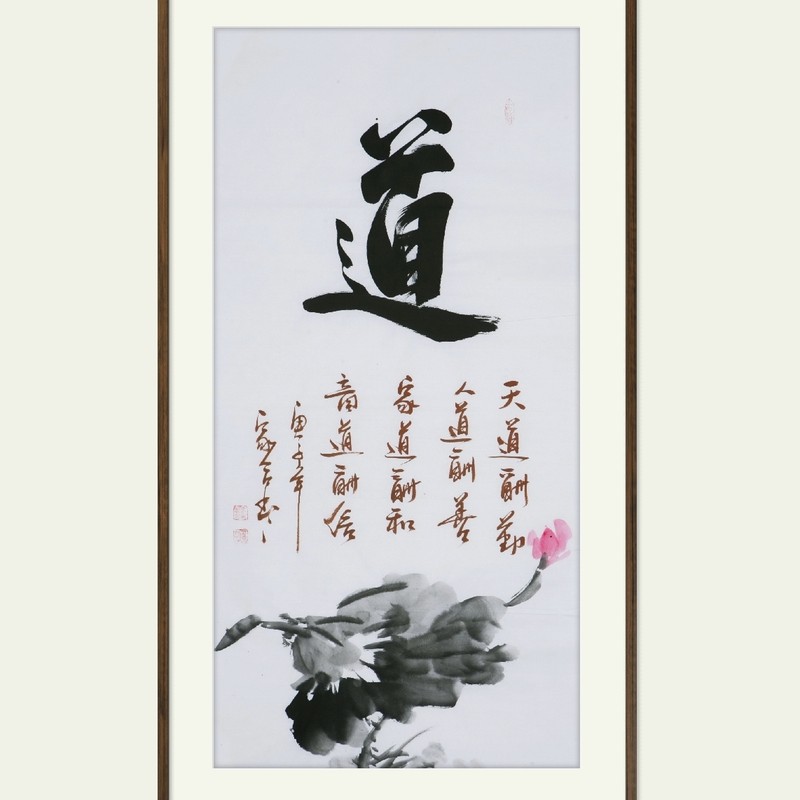 道
天道酬勤
人道酬善
家道酬和
商道酬信
庚子年